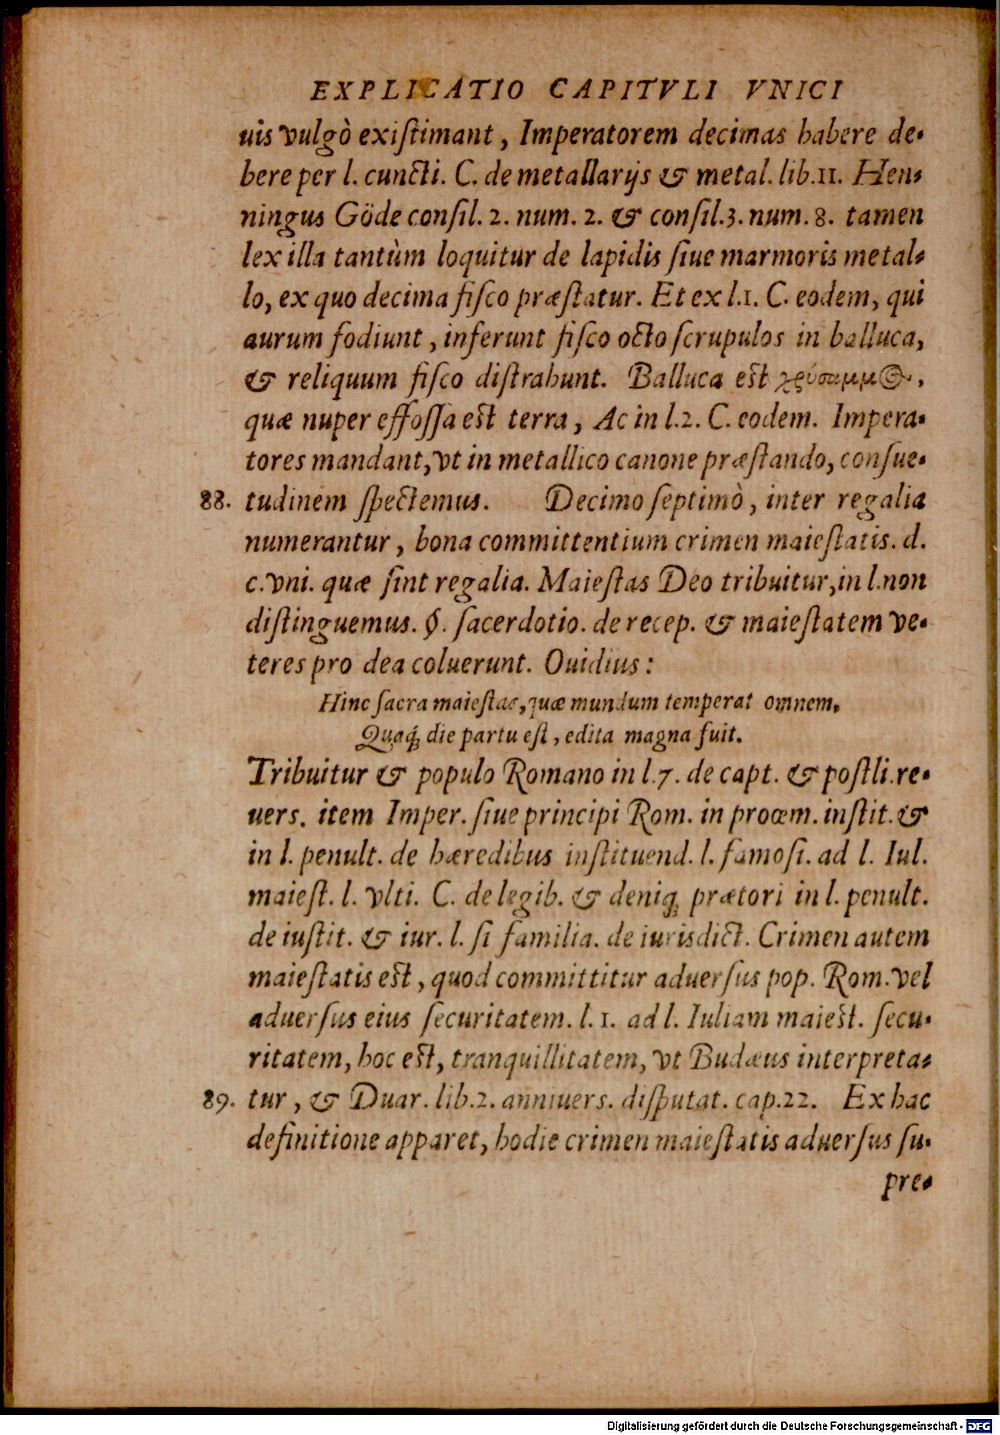 EXPLICATIO CAPITVLI VNICI
uis vulgò existimant, Imperatorem decimas habere de-
bere per l. cuncti. C. de metallarijs & metal. lib.11. Hen-
ningus Göde consil. 2. num. 2. & consil.3. num. 8. tamen
lex illa tantùm loquitur de lapidis siue marmoris metal-
lo, ex quo decima fisco præstatur. Et ex l.1. C. eodem, qui
aurum fodiunt, inferunt fisco octo scrupulos in balluca,
& reliquum fisco distrahunt. Balluca est χρύσαμμος,
quæ nuper effossa est terra, Ac in l.2. C. eodem. Impera-
tores mandant, vt in metallico canone præstando, consue-
88. tudinem spectemus. Decimo septimò, inter regalia
numerantur, bona committentium crimen maiestatis. d.
c. vni. quæ sint regalia. Maiestas Deo tribuitur, in l. non
distinguemus. §. sacerdotio. de recep. & maiestatem ve-
teres pro dea coluerunt. Ouidius:
Hinc sacra maiestas, quæ mundum temperat omnem,
Quaq; die partu est, edita magna fuit.
Tribuitur & populo Romano in l.7. de capt. & postli. re-
uers. item Imper. siue principi Rom. in proœm. instit. &
in l. penult. de hæredibus instituend. l. famosi. ad l. Iul.
maiest. l. vlti. C. de legib. & deniq; prætori in l. penult.
de iustit. & iur. l. si familia. de iurisdict. Crimen autem
maiestatis est, quod committitur aduersus pop. Rom. vel
aduersus eius securitatem. l. 1. ad l. Iuliam maiest. secu-
ritatem, hoc est, tranquillitatem, vt Budæus interpreta-
89. tur, & Duar. lib.2. anniuers. disputat. cap.22. Ex hac
definitione apparet, hodie crimen maiestatis aduersus su-
pre-
Digitalisierung gefördert durch die Deutsche Forschungsgemeinschaft - DFG